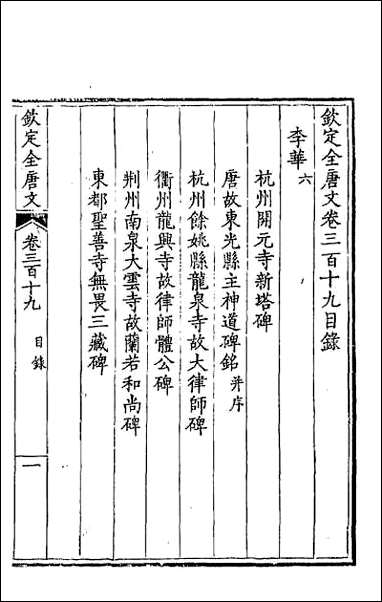 欽定全唐文卷三百十九目錄
李華六
杭州開元寺新塔碑
唐故東光縣主神道碑銘并序
杭州餘姚縣龍泉寺故大律師碑
衢州龍興寺故律師體公碑
荆州南泉大雲寺故蘭若和尚碑
東都聖善寺無畏三藏碑
欽定全唐文 卷三百十九 目錄 一